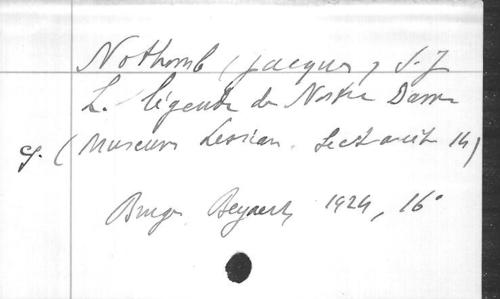 Nothomb (Jacques) S.J
La légende de Notre Dame
cf. (Museum Lessian. Sect ascét 14)
Bruges Beyaert, 1924, 16°